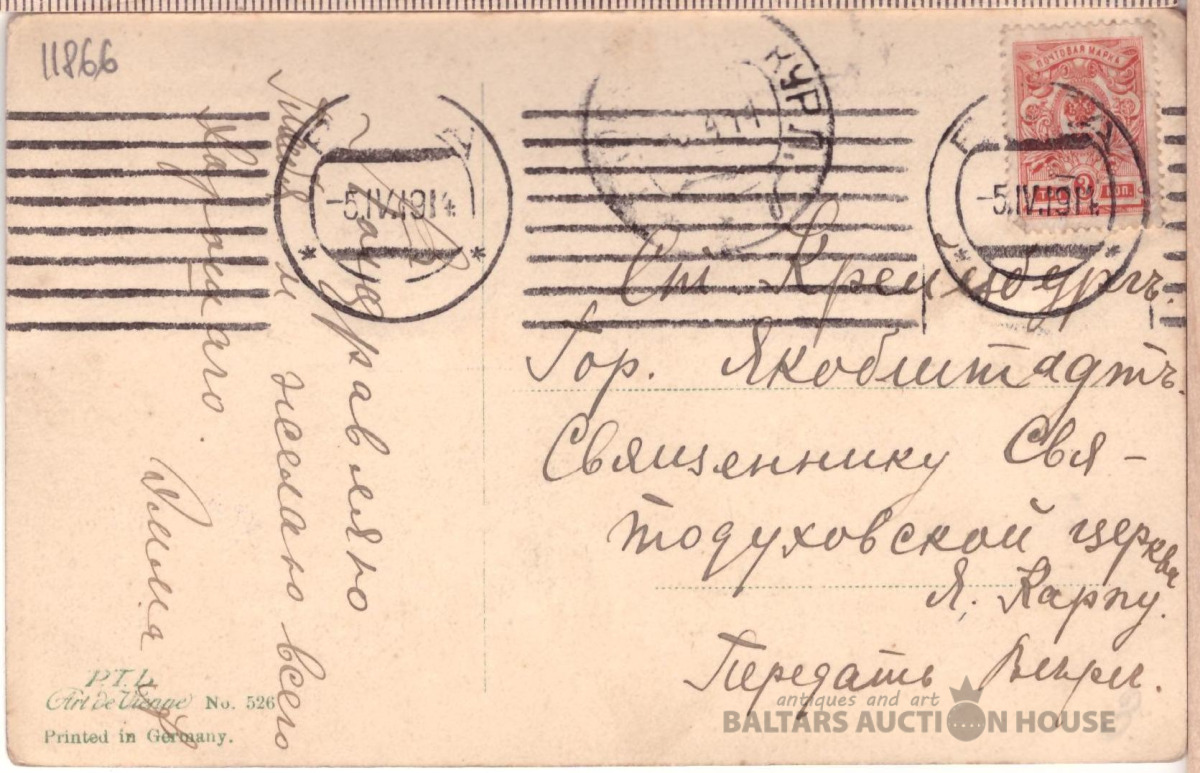 11866
ПОЧТОВАЯ МАРКА
КОП.
-5.IV.1914
-5.IV.1914
КУРЛ.
Поздравляю
Тебя и желаю всего
Хорошаго.
Ст. Крейцбургъ.
Гор. Якобштадтъ.
Священнику Свя-
тодуховской церкви
Я. Карпу.
Передать
P.T.L.
Art de Vienne No. 526
Printed in Germany.
antiques and art
BALTARS AUCTION HOUSE